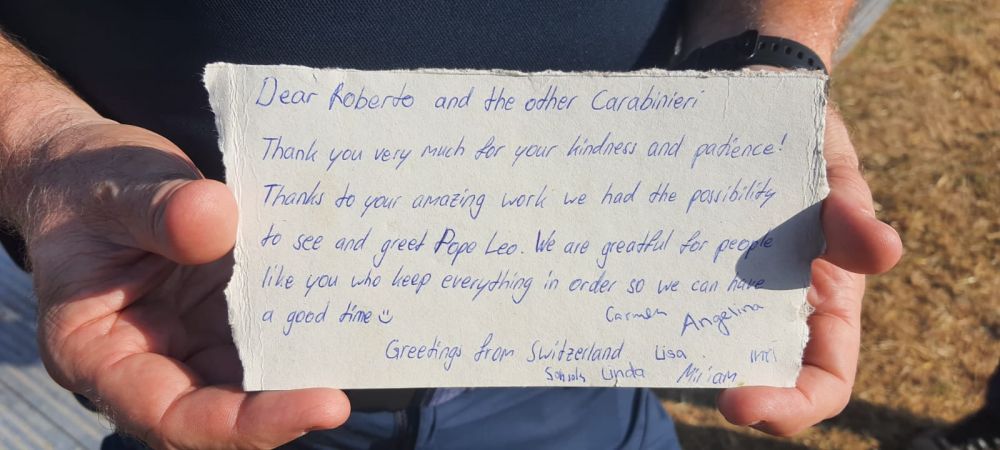 Dear Roberto and the other Carabinieri
Thank you very much for your kindness and patience!
Thanks to your amazing work we had the possibility
to see and greet Pope Leo. We are greatful for people
like you who keep everything in order so we can have
a good time☺ Carmen Angelina
Greetings from Switzerland Lisa
Linda Miriam